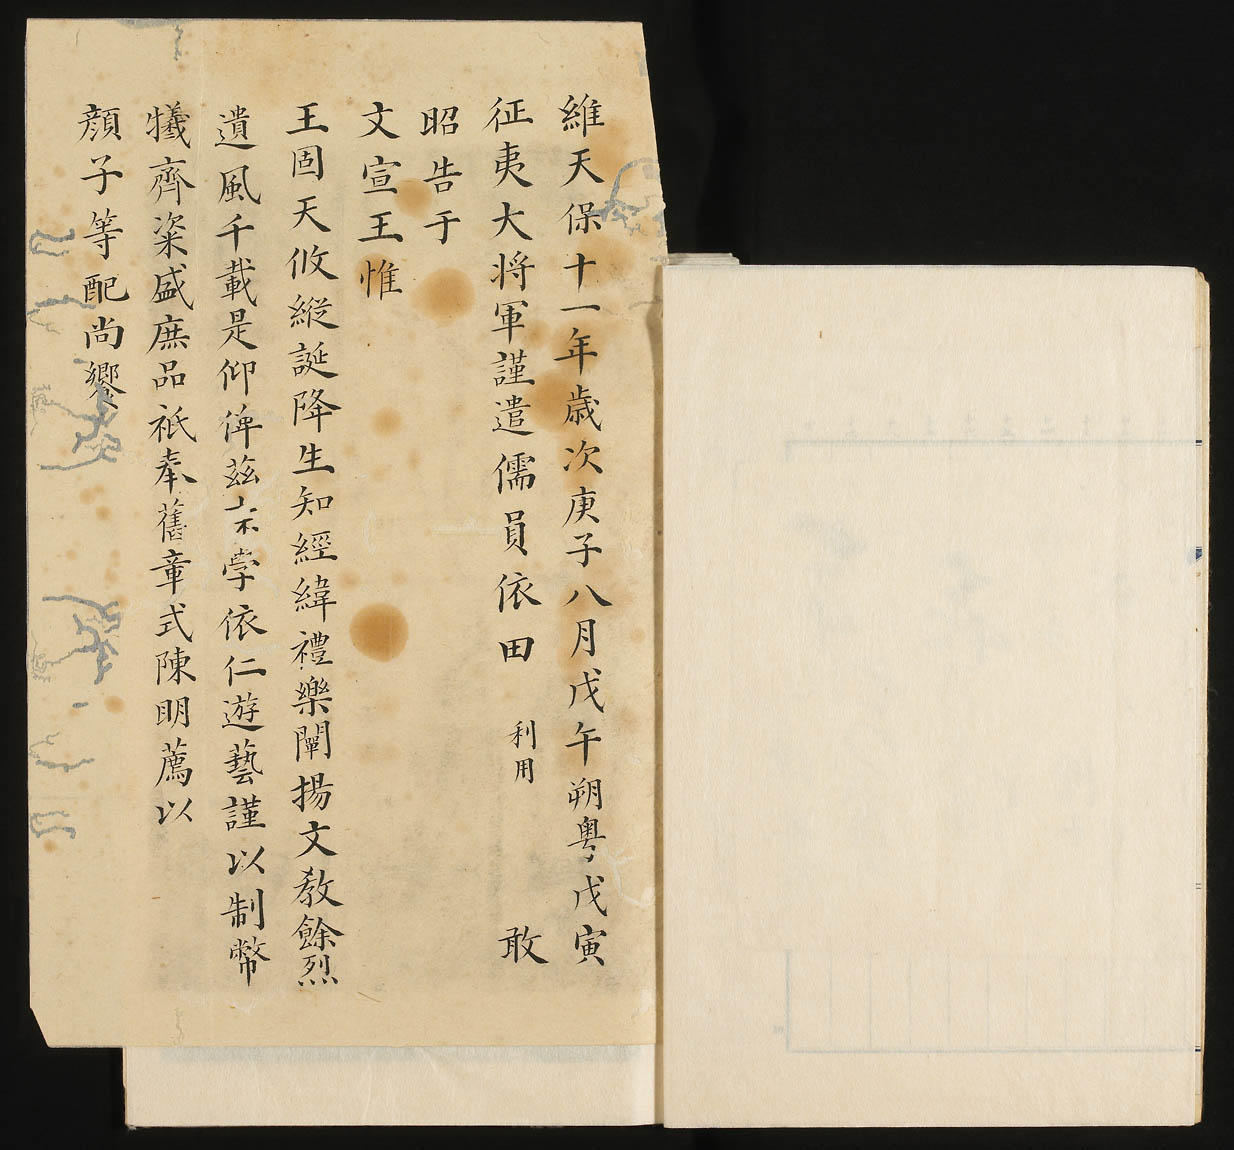 維天保十一年歳次庚子八月戊午朔粤戊寅
征夷大将軍謹遣儒員依田利用敢
昭告于
文宣王惟
王固天攸縱誕降生知經緯禮樂闡揚文教餘烈
遺風千載是仰俾茲末学依仁遊藝謹以制幣
犠齊粢盛庶品祗奉舊章式陳明薦以
顔子等配尚饗